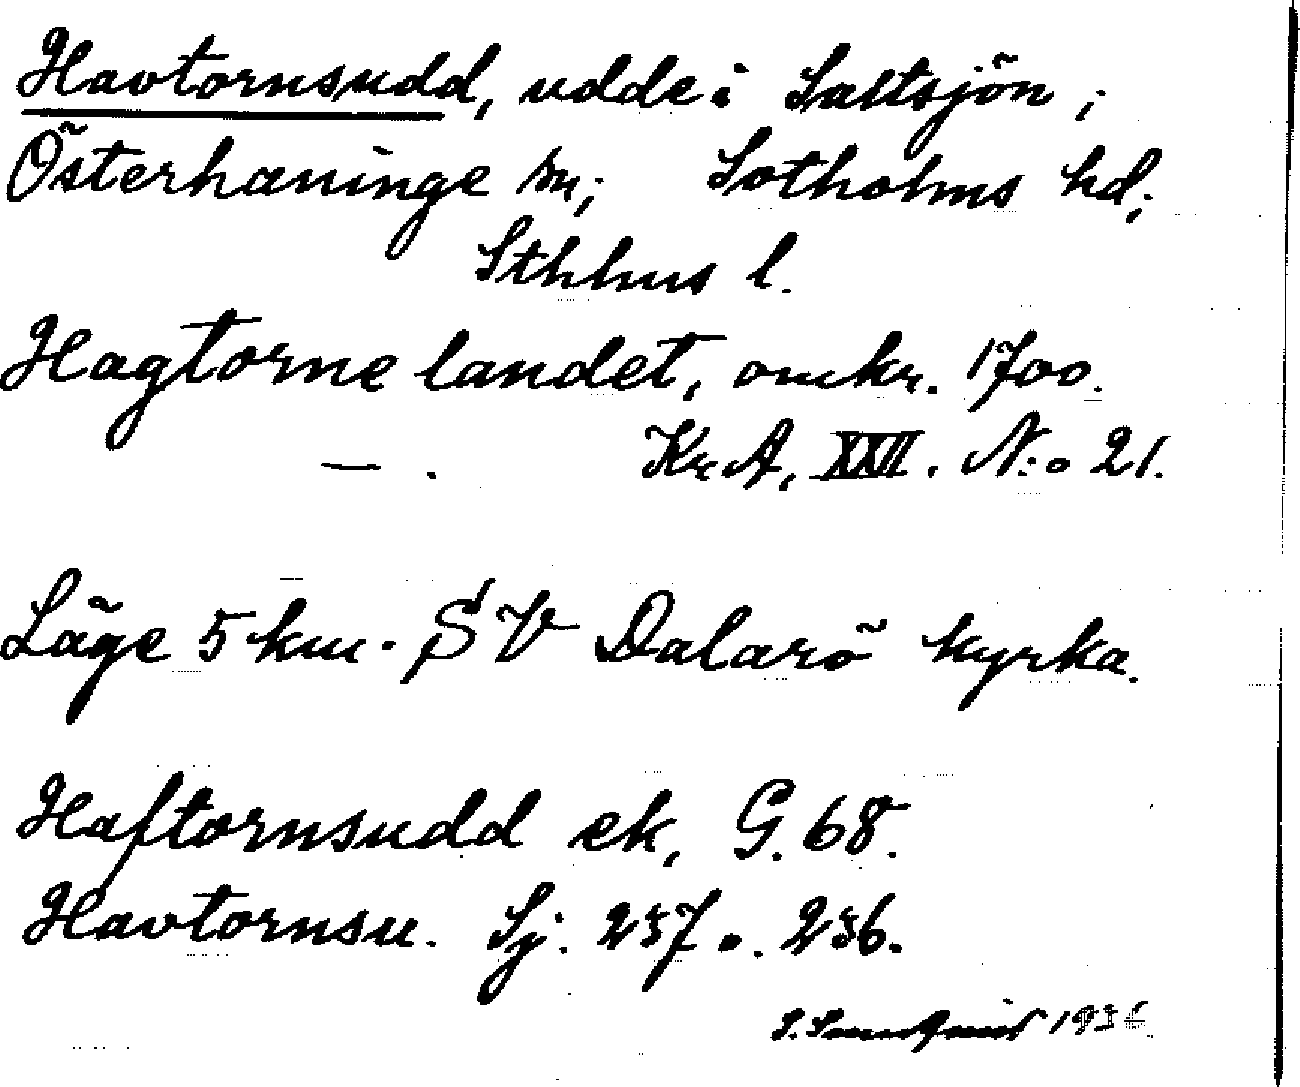 Havtornsudd, udde i Saltsjön;
Österhaninge sn; Sotholms hd;
Sthlms l.
Hagtorne landet, omkr. 1700.
— . KrA, XXII. N:o 21.
Läge 5 km. SV Dalarö kyrka.
Haftornsudd ek, G. 68.
Havtornsu. Sj. 257 o. 256.
S. 193